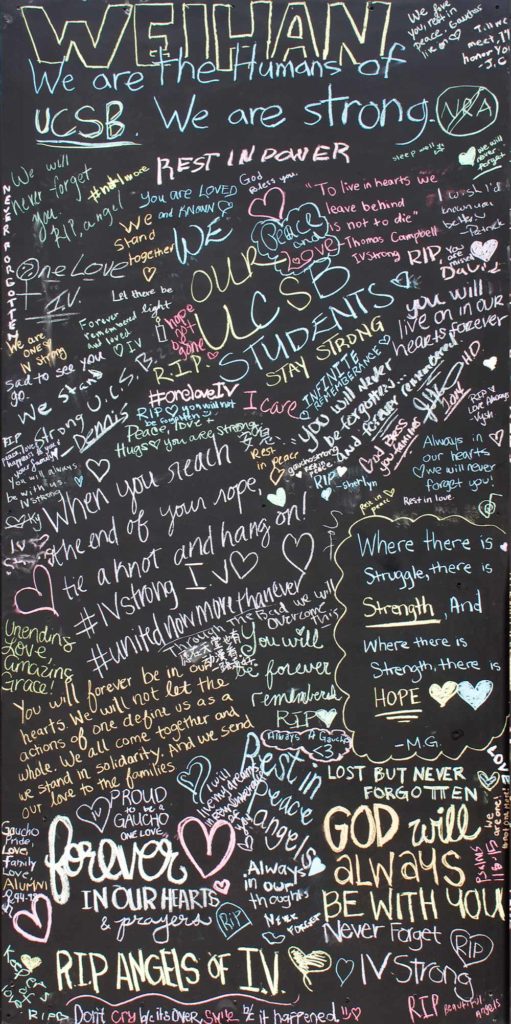 WEIHAN
We are the Humans of
UCSB. We are strong.
NRA
We love
you, rest in
peace. Gauchos
live on
REST IN POWER
sleep well
we will
never
forget
We will
never forget
you.
RIP, angel
#not1more
NEVER FORGOTTEN
you are LOVED
and KNOWN
God
Bless you.
"To live in hearts we
leave behind
is not to die"
- Thomas Campbell
I wish I'd
known you
better
- Patrick
We
stand
together
WE
Peace
and
Love
IV strong
RIP,
David
One Love
I.V.
OUR
UCSB
STUDENTS
STAY STRONG
Let there be
light
you will
live on in our
hearts forever
We are
ONE
IV strong
Forever
remembered
and loved
IV
hope
not
be
gone
R.I.P.
Sad to see you
go.
We stand
strong U.C.S.B.
Dennis
INFINITE
REMEMBERANCE
#oneloveIV
I care
you will never
be forgotten...
and forever remembered
God Bless
you families
RIP you will not
be forgotten
Peace, love +
Hugs you are strong
Rest
in peace
gauchostrong
RIP
Always in
our hearts
we will never
forget you!
Rest in love.
Rest in
peace
you will always
be with us.
IV strong
When you reach
the end of your rope,
tie a knot and hang on!
#IVstrong IV
#united now more than ever
Through the Bad we will
Overcome
this
Where there is
Struggle, there is
Strength, And
Where there is
Strength, there is
HOPE
-M.G.
Unending
Love,
amazing
Grace!
You will
be
forever
remembered
RIP
You will forever be in our
hearts. We will not let the
actions of one define us as a
whole. We all come together and
we stand in solidarity. And we send
our love to the families
Always A Gaucho
<3
Rest in
Peace
angels
LOST BUT NEVER
FORGOTTEN
LOVE
PROUD
to be a
GAUCHO
ONE LOVE,
IV
GOD will
always
BE WITH YOU
we
are one!
Psalms
116:15
Gaucho
Pride,
Love,
family
Love,
Alumni
forever
IN OUR HEARTS
& prayers
Always
in our
thoughts
NEVER
FORGET
RIP
Never Forget
RIP
RIP ANGELS OF I.V.
IV Strong
RIP Beautiful
Angels
RIP
Don't cry b/c its over, smile b/c it happened.!!